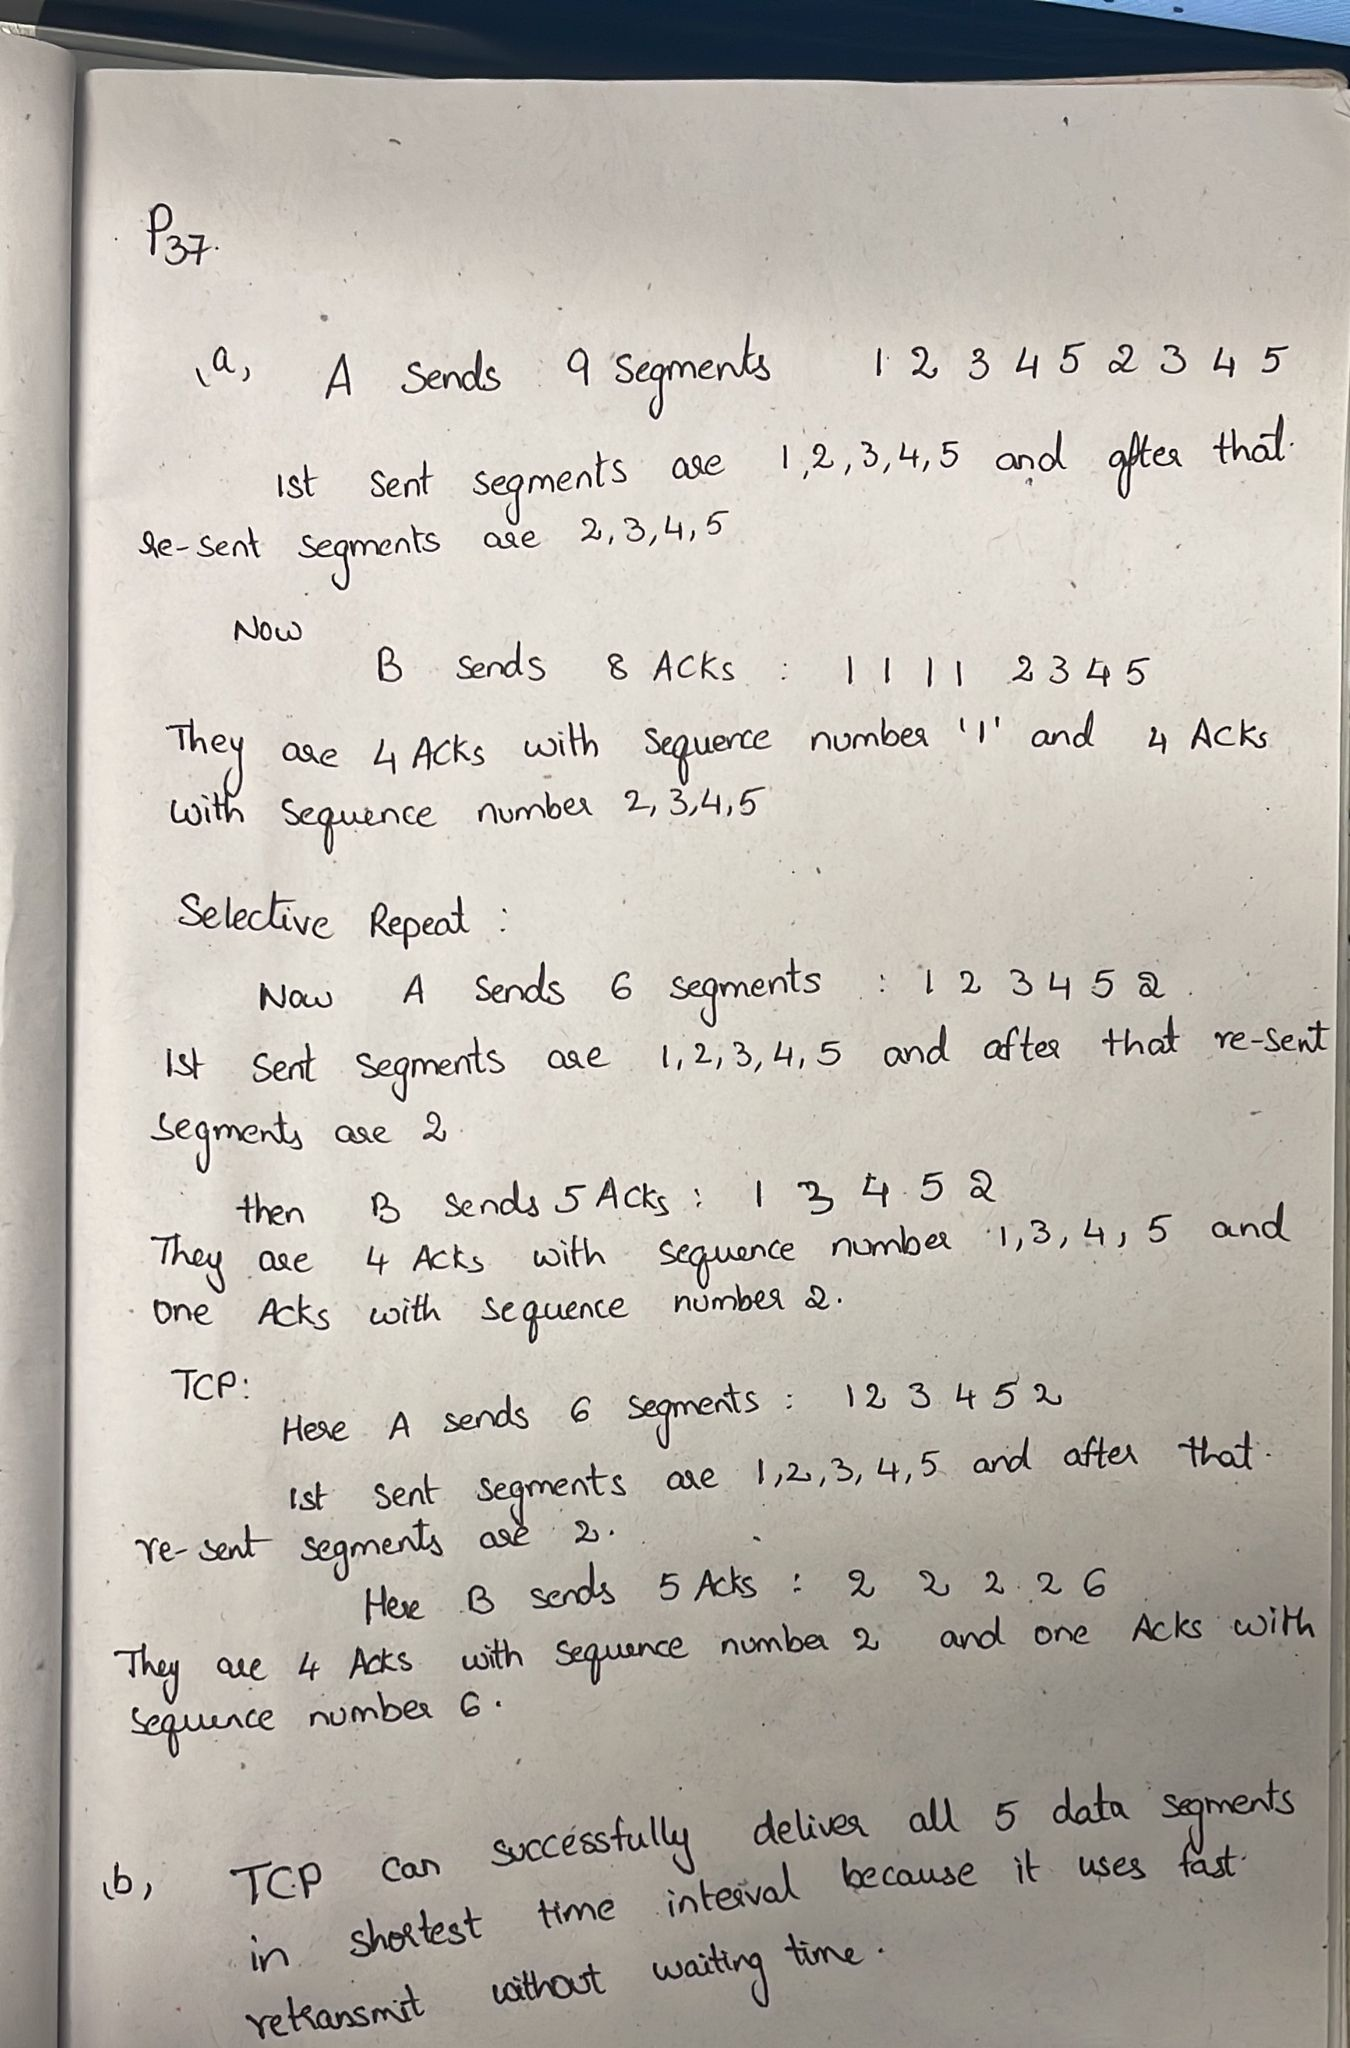 P37.
(a, A sends 9 segments 1 2 3 4 5 2 3 4 5
1st sent segments are 1,2,3,4,5 and after that
re-sent segments are 2,3,4,5
Now
B sends 8 ACKs : 1 1 1 1 2 3 4 5
They are 4 ACKs with sequence number '1' and 4 ACKs
with sequence number 2,3,4,5
Selective Repeat :
Now A sends 6 segments : 1 2 3 4 5 2.
1st sent segments are 1,2,3,4,5 and after that re-sent
segments are 2
then B sends 5 ACKs : 1 3 4 5 2
They are 4 ACKs with sequence number 1,3,4,5 and
one ACKs with sequence number 2.
TCP:
Here A sends 6 segments : 1 2 3 4 5 2
1st sent segments are 1,2,3,4,5 and after that
re-sent segments are 2.
Here B sends 5 Acks : 2 2 2 2 6
They are 4 Acks with sequence number 2 and one Acks with
sequence number 6.
(b, TCP can successfully deliver all 5 data segments
in shortest time interval because it uses fast
retransmit without waiting time.